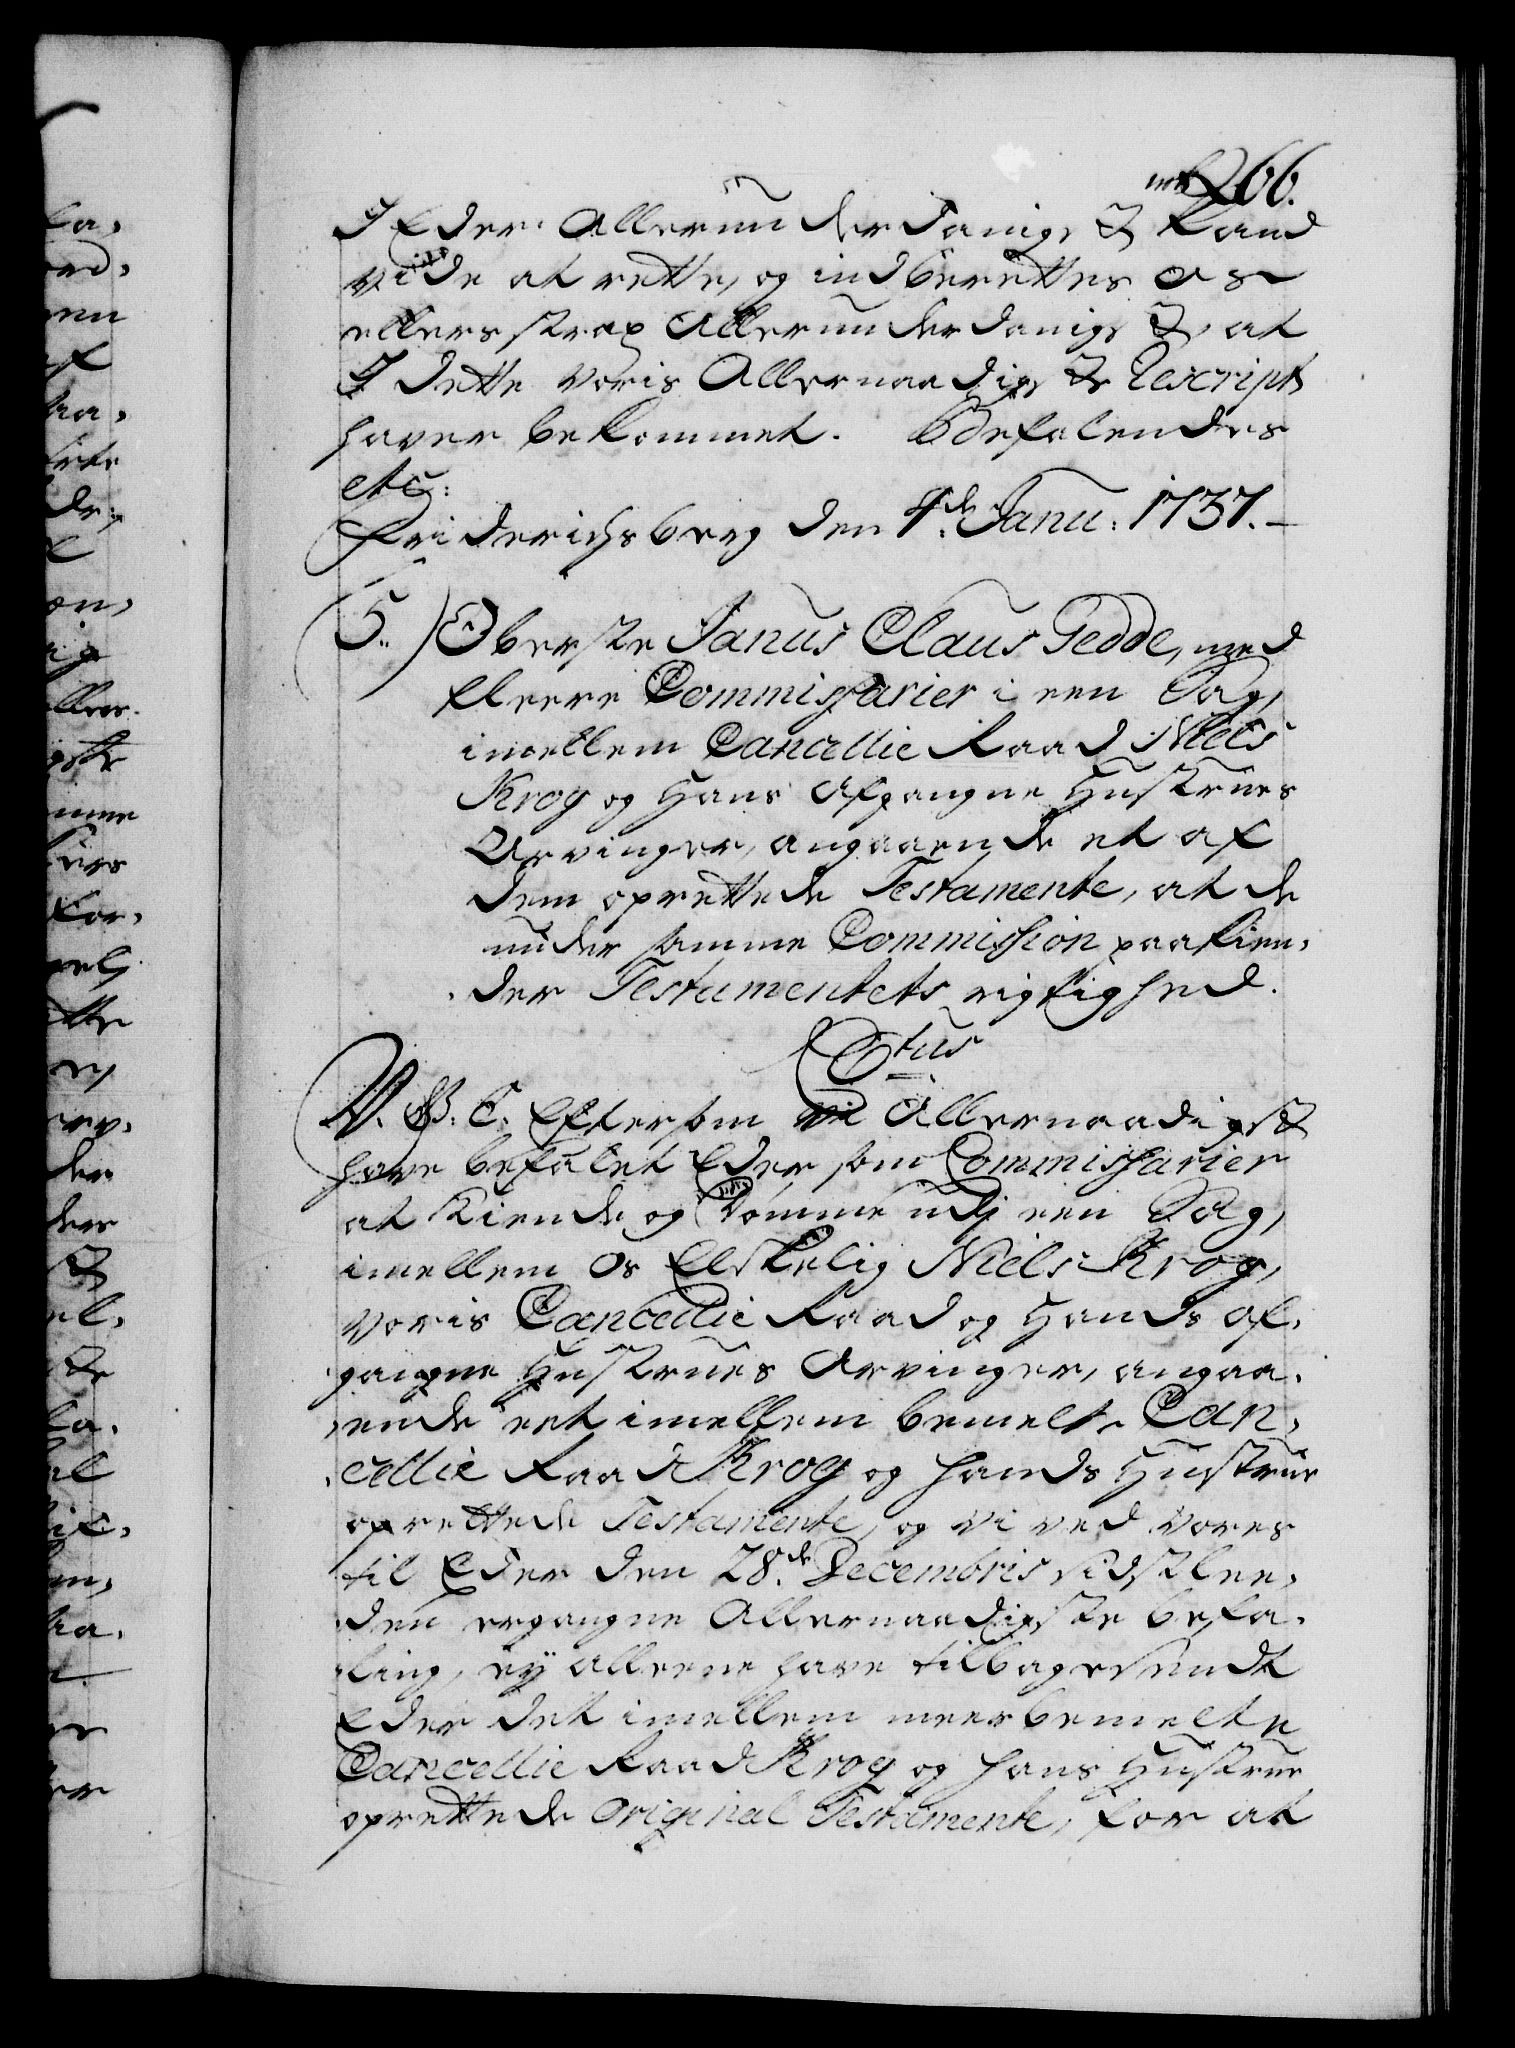 266.
I Eder Allerunderdanigst kand
vide at rette, og indberettes os
ellers strax Allerunderdanigst, at
I dette voris Allernaadigste Rescript
haver bekommet. Befalendes
etc:
Friderichsberg den 4de Janu: 1737. –
5.) Oberste Janus Claus Gedde, med
fleere Commissarier i een Sag,
imellem Cancellie Raad Niels
Krog og Hans afgangne Hustrues
Arvinger, angaaende et af
dem oprettede Testamente, at de
under samme Commission paakien-
der Testamentets rigtighed.
C6tus
V. G. T. Eftersom vi Allernaadigst
have befalet Eder som Commissarier
at kiende og dømme udj een Sag,
imellem Os Elskelig Niels Krog,
voris Cancellie Raad og Hands af-
gangne Hustrues Arvinger, angaa-
ende eet imellem bemelte Can-
cellie Raad Krog og hands Hustrue
oprettede Testamente, og vi ved vores
til Eder den 28de Decembris sidstlee-
den ergangne Allernaadigste befa-
ling, ey alleene have tilbagesendt
Eder det imellem meerbemelte
Cancellie Raad Krog og hans Hustrue
oprettede Original Testamente, for at